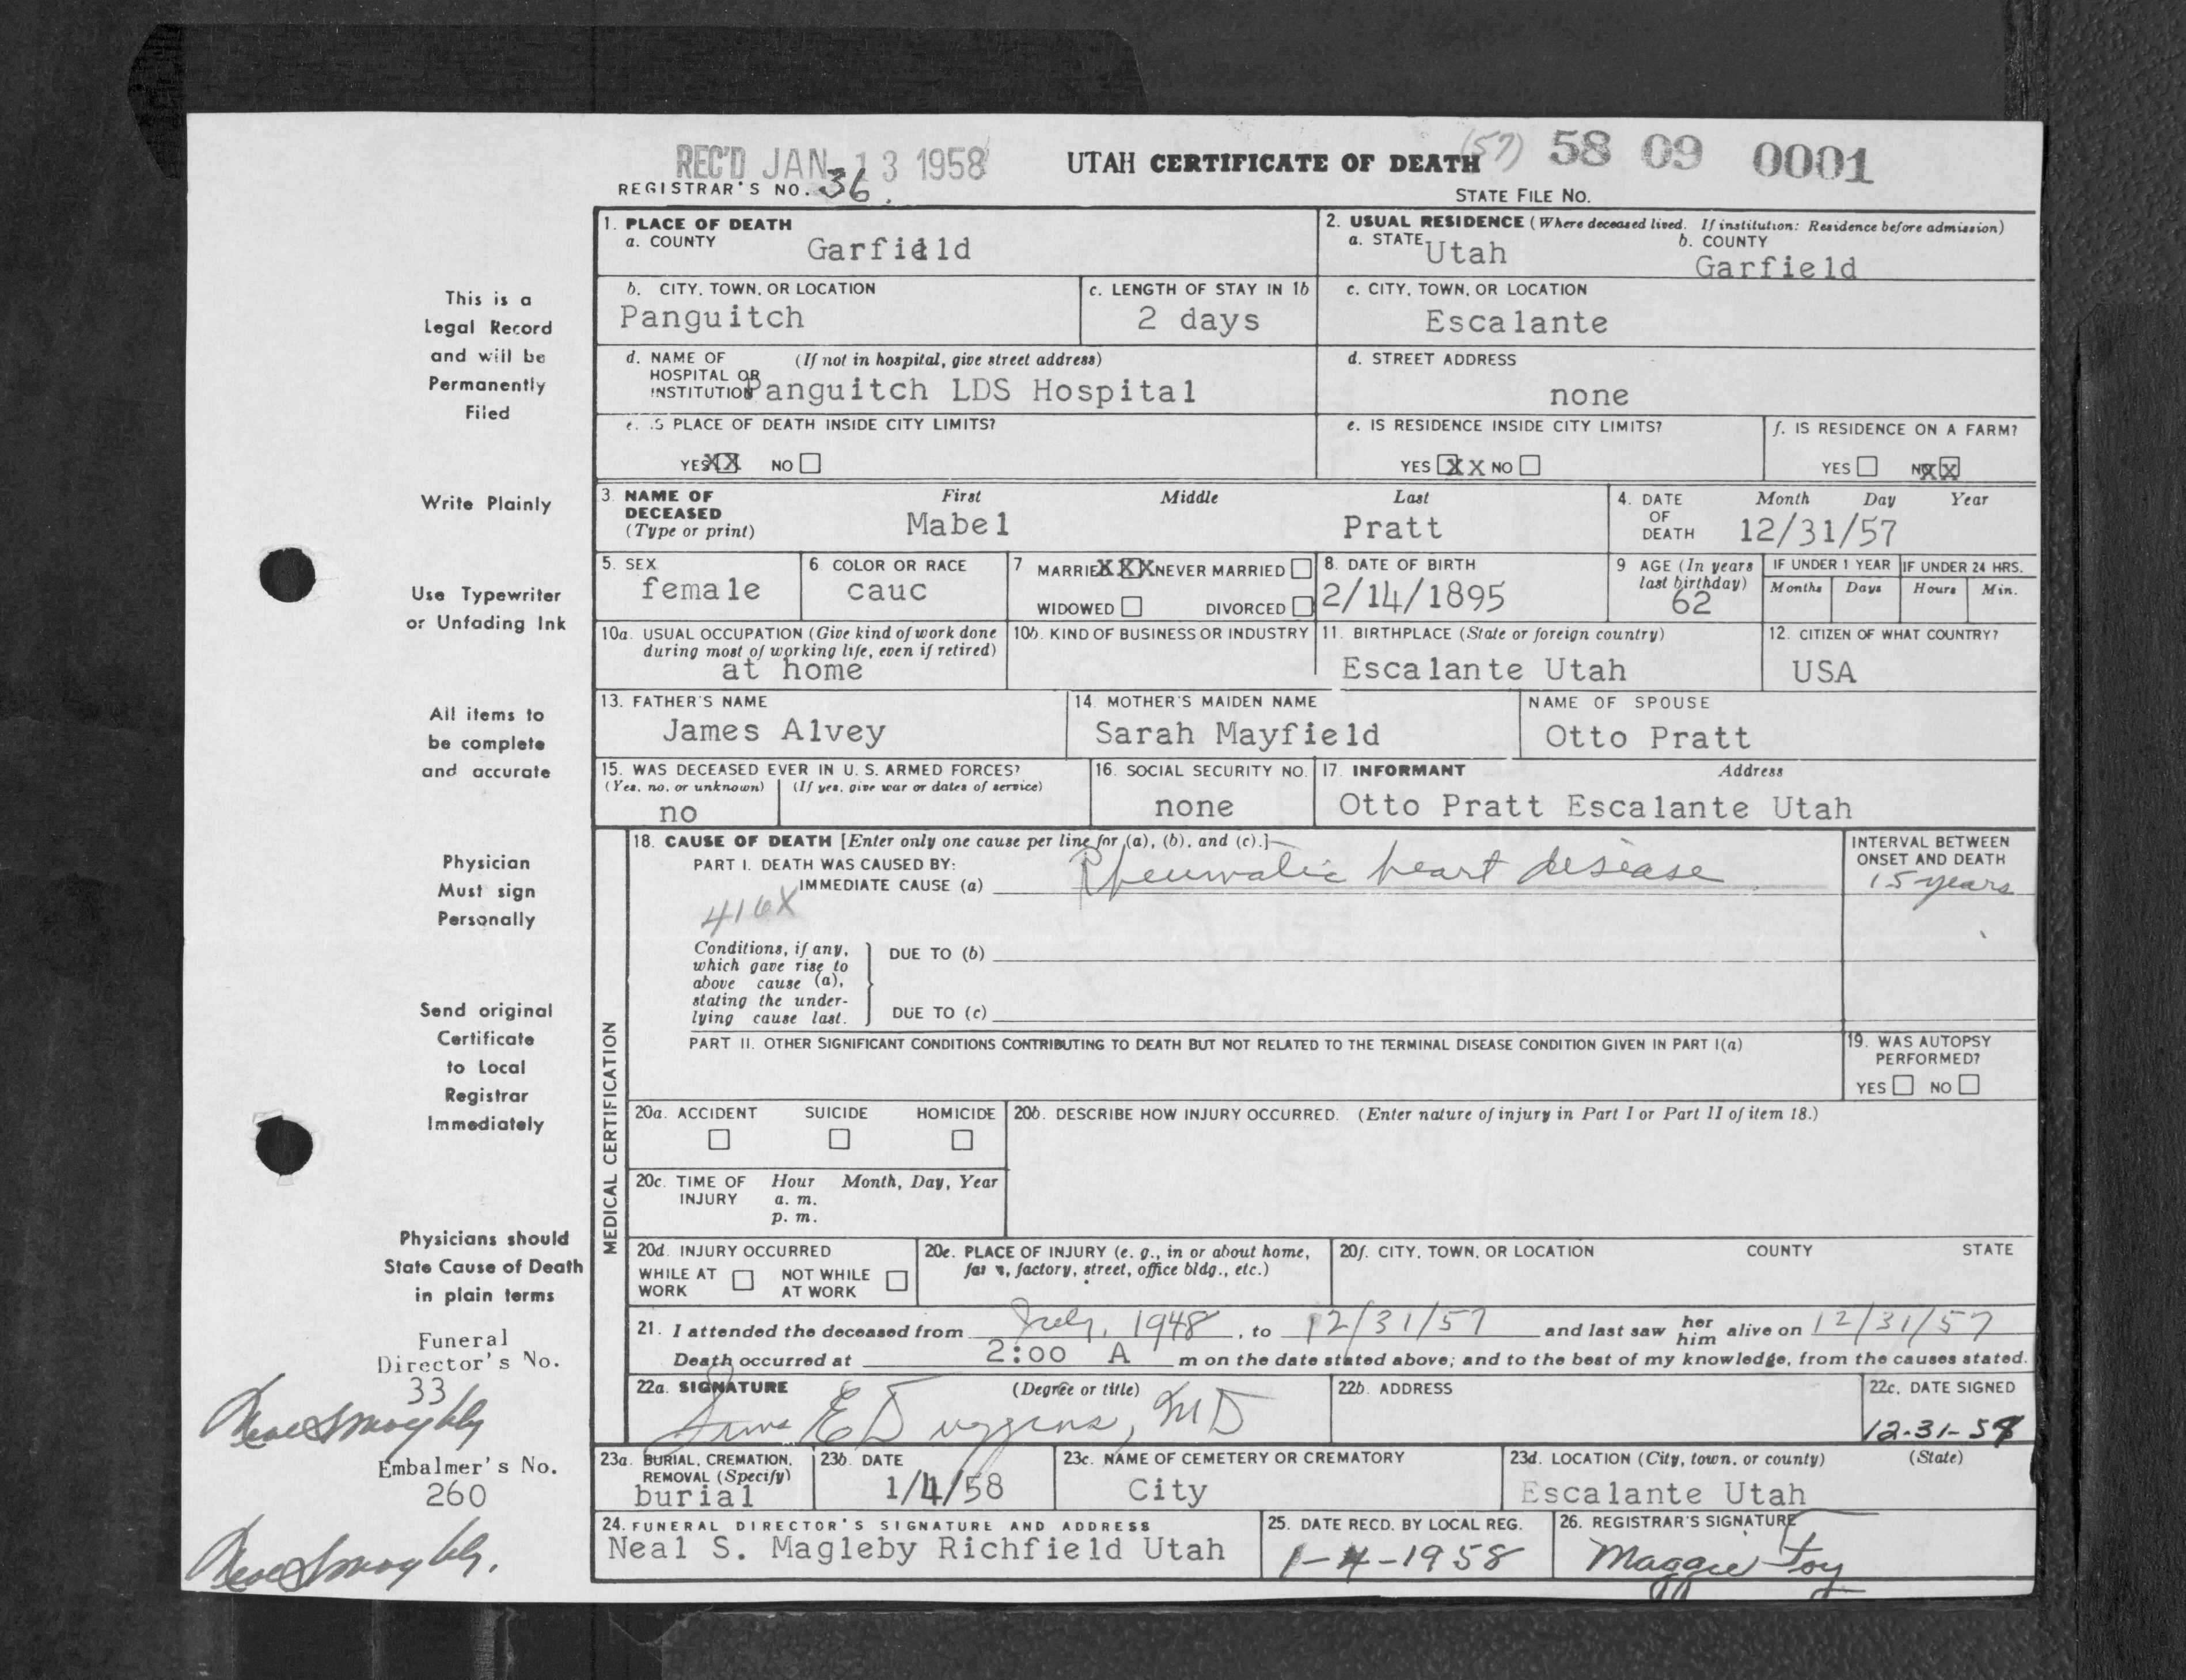 REC'D JAN 13 1958
UTAH CERTIFICATE OF DEATH (57) 58 09 0001
REGISTRAR'S NO. 36.
STATE FILE NO.
1. PLACE OF DEATH
a. COUNTY Garfield
2. USUAL RESIDENCE (Where deceased lived. If institution: Residence before admission)
a. STATE Utah b. COUNTY Garfield
b. CITY, TOWN, OR LOCATION
Panguitch
c. LENGTH OF STAY IN 1b
2 days
c. CITY, TOWN, OR LOCATION
Escalante
d. NAME OF HOSPITAL OR INSTITUTION (If not in hospital, give street address)
Panguitch LDS Hospital
d. STREET ADDRESS
none
e. IS PLACE OF DEATH INSIDE CITY LIMITS?
YES XX NO
e. IS RESIDENCE INSIDE CITY LIMITS?
YES XX NO
f. IS RESIDENCE ON A FARM?
YES NO XX
3. NAME OF DECEASED (Type or print)
First Middle Last
Mabel Pratt
4. DATE OF DEATH Month Day Year
12/31/57
5. SEX
female
6 COLOR OR RACE
cauc
7 MARRIED XXX NEVER MARRIED
WIDOWED DIVORCED
8. DATE OF BIRTH
2/14/1895
9 AGE (In years last birthday)
62
IF UNDER 1 YEAR IF UNDER 24 HRS.
Months Days Hours Min.
10a. USUAL OCCUPATION (Give kind of work done during most of working life, even if retired)
at home
10b. KIND OF BUSINESS OR INDUSTRY
11. BIRTHPLACE (State or foreign country)
Escalante Utah
12. CITIZEN OF WHAT COUNTRY?
USA
13. FATHER'S NAME
James Alvey
14. MOTHER'S MAIDEN NAME
Sarah Mayfield
NAME OF SPOUSE
Otto Pratt
15. WAS DECEASED EVER IN U. S. ARMED FORCES?
(Yes, no, or unknown) (If yes, give war or dates of service)
no
16. SOCIAL SECURITY NO.
none
17. INFORMANT Address
Otto Pratt Escalante Utah
MEDICAL CERTIFICATION
18. CAUSE OF DEATH [Enter only one cause per line for (a), (b), and (c).]
PART I. DEATH WAS CAUSED BY:
IMMEDIATE CAUSE (a) Rheumatic heart disease
INTERVAL BETWEEN ONSET AND DEATH
15 years
416X
Conditions, if any, which gave rise to above cause (a), stating the underlying cause last.
DUE TO (b)
DUE TO (c)
PART II. OTHER SIGNIFICANT CONDITIONS CONTRIBUTING TO DEATH BUT NOT RELATED TO THE TERMINAL DISEASE CONDITION GIVEN IN PART I(a)
19. WAS AUTOPSY PERFORMED?
YES NO
20a. ACCIDENT SUICIDE HOMICIDE
20b. DESCRIBE HOW INJURY OCCURRED. (Enter nature of injury in Part I or Part II of item 18.)
20c. TIME OF INJURY Hour Month, Day, Year
a. m.
p. m.
20d. INJURY OCCURRED
WHILE AT WORK NOT WHILE AT WORK
20e. PLACE OF INJURY (e. g., in or about home, farm, factory, street, office bldg., etc.)
20f. CITY, TOWN, OR LOCATION COUNTY STATE
21. I attended the deceased from July, 1948, to 12/31/57 and last saw her him alive on 12/31/57
Death occurred at 2:00 A m on the date stated above; and to the best of my knowledge, from the causes stated.
22a. SIGNATURE (Degree or title)
E Duggins, MD
22b. ADDRESS
22c. DATE SIGNED
12-31-57
23a. BURIAL, CREMATION, REMOVAL (Specify)
burial
23b. DATE
1/4/58
23c. NAME OF CEMETERY OR CREMATORY
City
23d. LOCATION (City, town, or county) (State)
Escalante Utah
24. FUNERAL DIRECTOR'S SIGNATURE AND ADDRESS
Neal S. Magleby Richfield Utah
25. DATE RECD. BY LOCAL REG.
1-4-1958
26. REGISTRAR'S SIGNATURE
Maggie Foy
This is a
Legal Record
and will be
Permanently
Filed
Write Plainly
Use Typewriter
or Unfading Ink
All items to
be complete
and accurate
Physician
Must sign
Personally
Send original
Certificate
to Local
Registrar
Immediately
Physicians should
State Cause of Death
in plain terms
Funeral
Director's No.
33
Neal S Magleby
Embalmer's No.
260
Neal S Magleby.